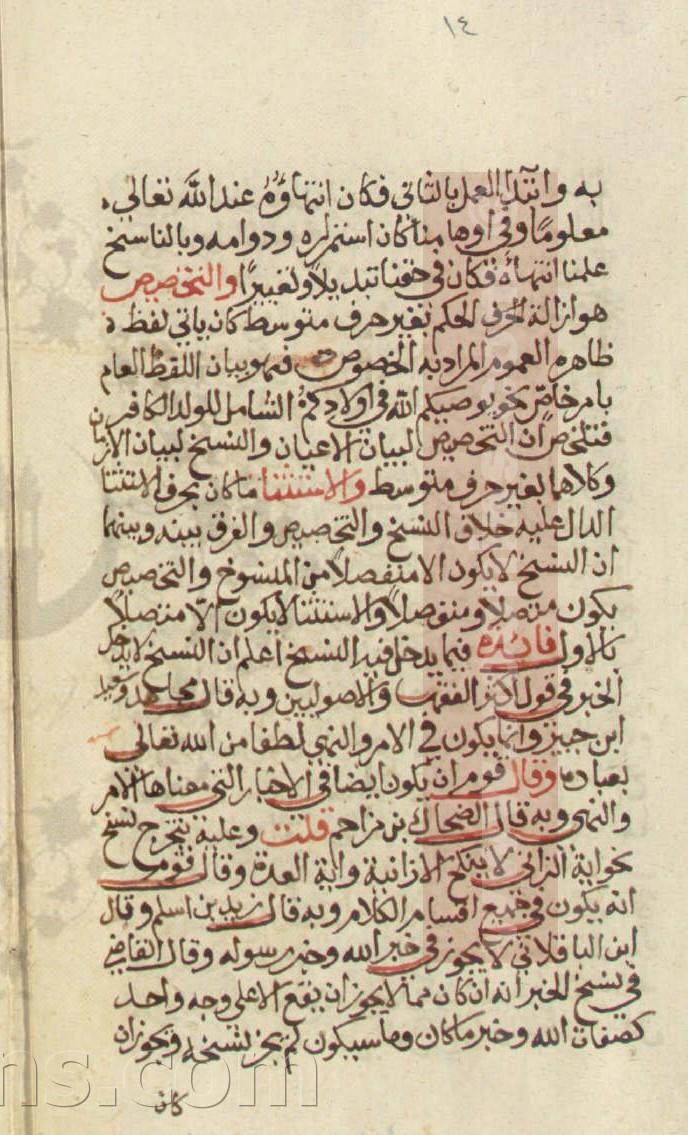 ١٤
به وابتدا العمل بالثاني فكان انتهاؤه عند الله تعالى
معلوما وفي اوهامنا كان استمراره ودوامه وبالناسخ
علمنا انتهاه فكان في حقنا تبديلا وتغييرا والتخصيص
هو ازالة الحكم بغير حرف متوسط كان ياتي لفظه
ظاهره العموم المراد به الخصوص فهو بيان اللفظ العام
بامر خاص نحو يوصيكم الله في اولادكم الشامل للولد الكافر
فتلخص ان التخصيص لبيان الاعيان والنسخ لبيان الازمان
وكلاهما بغير حرف متوسط والاستثنا ما كان بحرف الاستثنا
الدال عليه خلاف النسخ والتخصيص والفرق بينه وبينهما
ان النسخ لا يكون الا منفصلا من المنسوخ والتخصيص
يكون متصلا ومنفصلا والاستثنا لا يكون الا متصلا
بالاول فائدة فيما يدخل فيه النسخ اعلم ان النسخ لا يدخل
الخبر في قول اكثر الفقها والاصوليين وبه قال مجاهد وسعيد
ابن جبير وانما يكون في الامر والنهي لطفا من الله تعالى
بعباده وقال قوم ان يكون ايضا في الاخبار التي معناها الامر
والنهي وبه قال الضحاك بن مزاحم قلت وعليه يتخرج نسخ
نحو اية الزاني لا ينكح الا زانية واية العدة وقال قوم
انه يكون في جميع اقسام الكلام وبه قال زيد بن اسلم وقال
ابن الباقلاني لا يجوز في خبر الله وخبر رسوله وقال القاضي
في نسخ الخبر انه ان كان مما لا يجوز ان يقع الا على وجه واحد
كصفات الله وخبر ما كان وما سيكون لم يجز نسخه ويجوز ان
كان
ns.com